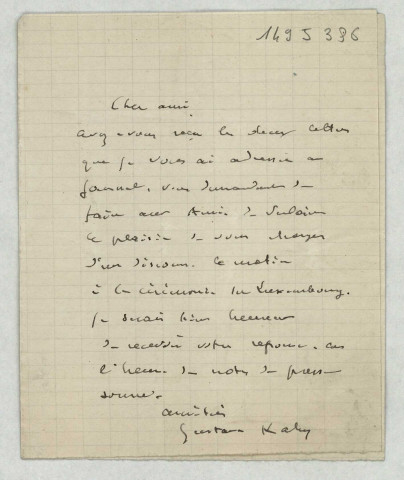 1495336
Cher ami
avez-vous reçu les deux lettres
que je vous ai adressées au
journal, vous demandant de
faire aux Amis de Verlaine
le plaisir de vous charger
d'un discours, le matin
à la cérémonie du Luxembourg.
je serais bien heureux
de recevoir votre reponse, car
l'heure des notes de presse
sonne.
amitiés
Gustave Kahn